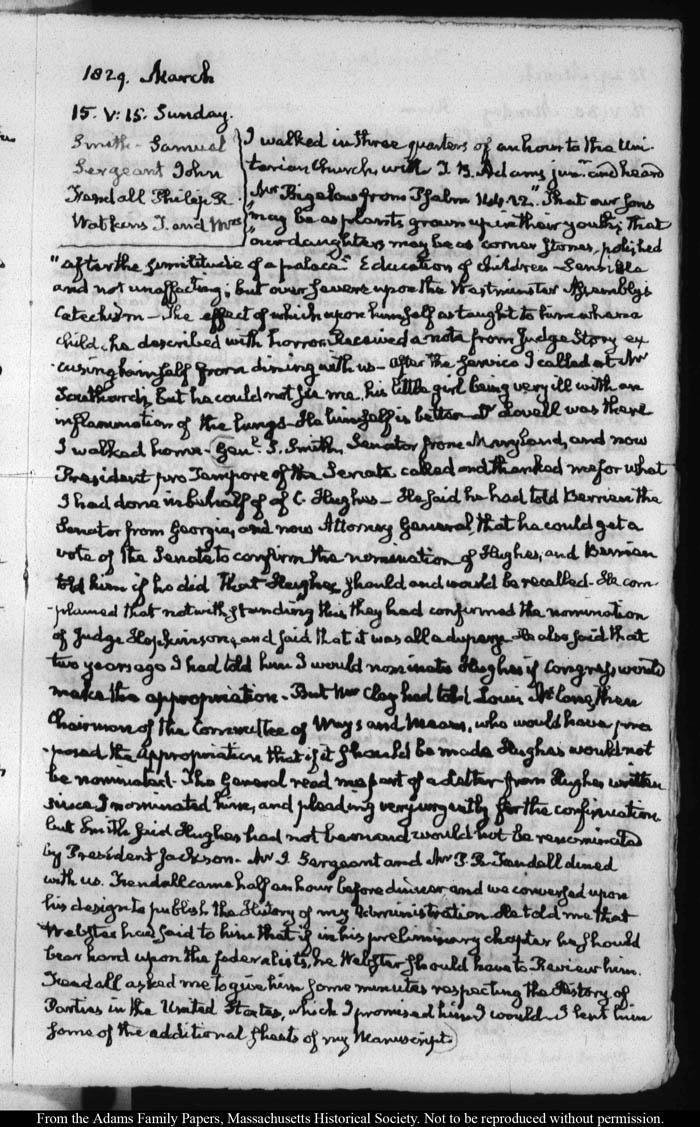 1829. March
15. V:15. Sunday.
Smith - Samuel
Sergeant John
Fendall Philip R.
Watkins T. and Mrs
I walked in three quarters of an hour to the Uni-
tarian Church, with T. B. Adams junr. and heard
Mr Bigelow from Psalm 144.12 "That our sons
"may be as plants grown up in their youth; that
"our daughters may be as corner stones, polished
"after the similitude of a palace." Education of Children - Sensible
and not unaffecting; but over severe upon the Westminster Assembly's
Catechism - The effect of which upon himself as taught to him when a
child, he described with horror. Received a note from Judge Story ex-
cusing himself from dining with us - After the service I called at Mr
Southard's, but he could not see me, his little girl being very ill with an
inflammation of the lungs - He himself is better - Dr Lovell was there
I walked home - Genl. S. Smith, Senator from Maryland, and now
President pro Tempore of the Senate called and thanked me for what
I had done in behalf of of C. Hughes - He said he had told Berrien the
Senator from Georgia, and now Attorney General, that he could get a
vote of the Senate to confirm the nomination of Hughes, and Berrien
told him if he did that Hughes should and would be recalled - He com-
-plained that notwithstanding this they had confirmed the nomination
of Judge Hopkinson, and said that it was all a He also said that
two years ago I had told him I would nominate Hughes if Congress would
make the appropriation - But Mr Clay had told Louis McLane, then
Chairman of the Committee of Ways and Means, who would have pro-
-posed the appropriation that if it should be made Hughes would not
be nominated - The General read me part of a Letter from Hughes written
since I nominated him, and pleading very urgently for the confirmation
but Smith said Hughes had not been and would not be renominated
by President Jackson - Mr J. Sergeant and Mr P. R. Fendall dined
with us. Fendall came half an hour before dinner and we conversed upon
his design to publish the History of my Administration. He told me that
Webster had said to him that if in his preliminary chapter he should
bear hard upon the federalists, he Webster should have to Review him.
Fendall asked me to give him some minutes respecting the History of
Parties in the United States, which I promised him I would - I lent him
some of the additional sheets of my Manuscript.
From the Adams Family Papers, Massachusetts Historical Society. Not to be reproduced without permission.